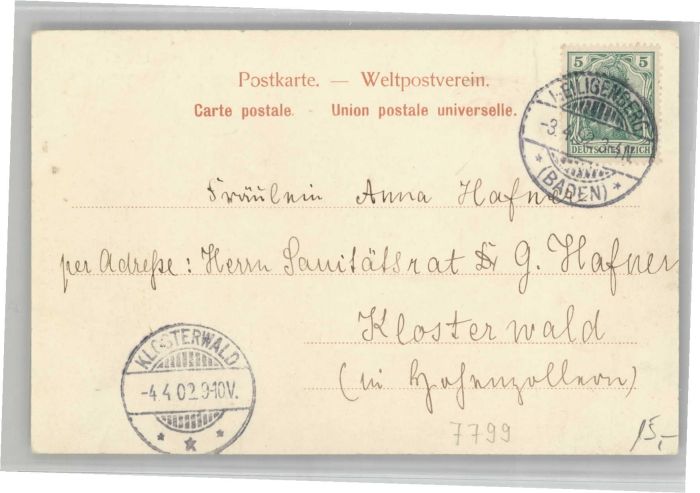 5 5
DEUTSCHES REICH
HEILIGENBERG
-3.4.02.3-4N.
* (BADEN) *
Postkarte. — Weltpostverein.
Carte postale. Union postale universelle.
Fräulein Anna Hafner
per Adreße: Herrn Sanitätsrat Dr G. Hafner
Klosterwald
(in Hohenzollern)
KLOSTERWALD
-4 4 02.9-10V.
7799
15,-